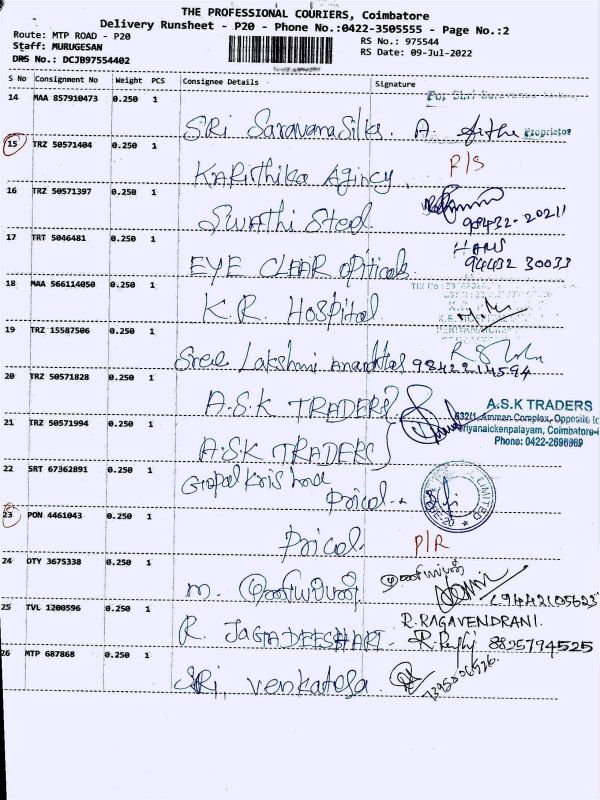 THE PROFESSIONAL COURIERS, Coimbatore
Delivery Runsheet - P20 - Phone No.:0422-3505555 - Page No.:2
Route: MTP ROAD - P20
RS No.: 975544
Staff: MURUGESAN
RS Date: 09-Jul-2022
DRS No.: DCJB97554402
S No Consignment No Weight PCS Consignee Details Signature
14 MAA 857910473 0.250 1
Sri Saravana Silks. A. Proprietor
15 TRZ 50571404 0.250 1
P/S
Karthika Agincy.
16 TRZ 50571397 0.250 1
Swathi Steel
98432-20211
17 TRT 5046481 0.250 1
HARS
94432 30033
EYE CLEAR opiticals
18 MAA 566114050 0.250 1
K.R. Hospital
19 TRZ 15587506 0.250 1
Sree Lakshmi 9842214594
20 TRZ 50571828 0.250 1
A.S.K TRADERS
A.S.K TRADERS
632/1, Amman Complex, Opposite
Periyanaickenpalayam, Coimbatore-
Phone: 0422-2696969
21 TRZ 50571994 0.250 1
A.S.K TRADERS
22 SRT 67362891 0.250 1
Gopal Krishna
Pricol
LIMITED
23 PON 4461043 0.250 1
Pricol
P/R
24 OTY 3675338 0.250 1
m. முனியப்பன்
முனியப்பன்
9442105623
25 TVL 1200596 0.250 1
R. RAGAVENDRANI.
R. JAGADEESHARI 8825794525
26 MTP 687868 0.250 1
Sri venkatesa
7395806926